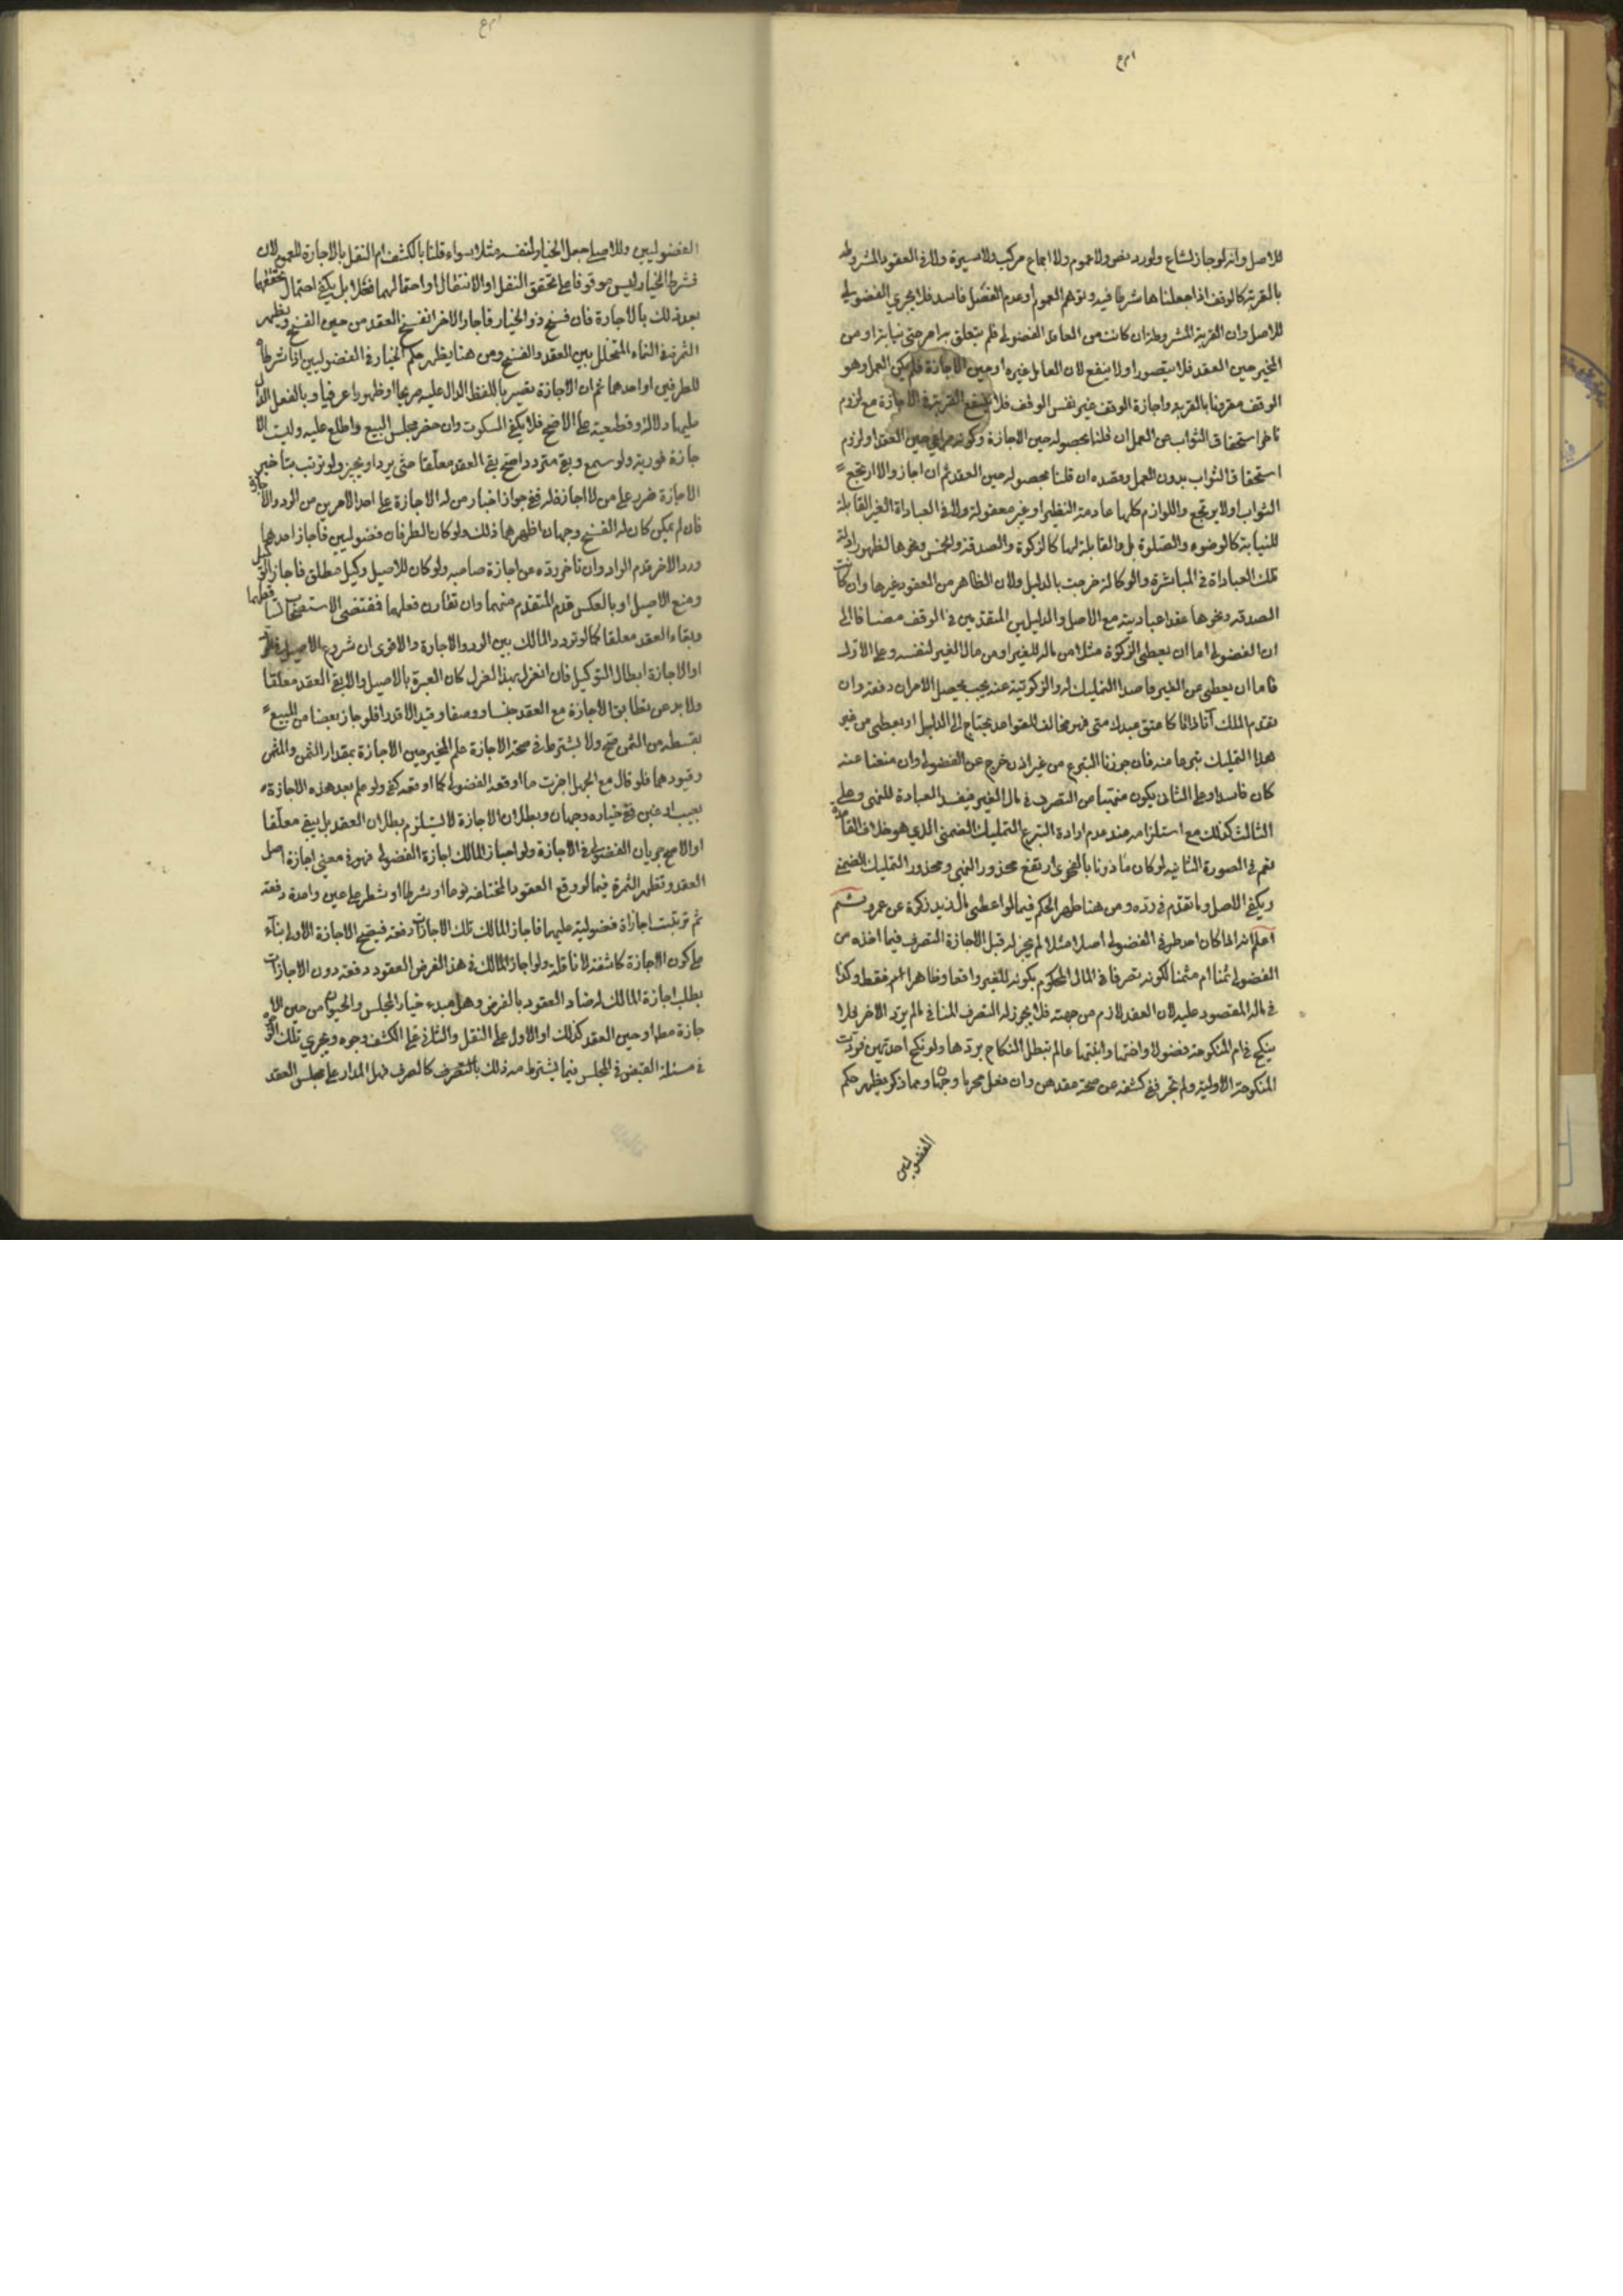 للاصل وانه لو جاز لشاع ولورد نص ولا عموم ولا اجماع مركب ولا سيرة ولا في العقود المشروطه
بالقربة كالوقف اذا جعلناها شرطا فيه وتوهم العموم او عدم الفصل فاسد فلا يجري الفضولي
للاصل وان القربة المشروطة ان كانت من العاقد الفضولي فلم يتعلق به امر حتى نيابة او من
المجيز حين العقد فلا يتصور او لا ينفع لان العامل غيره او حين الاجازة فلم يكن العمل وهو
الوقف مقرونا بالقربة واجازة الوقف غير نفس الوقف فلا ينفع القربة في الاجازة مع لزوم
تاخر استحقاق الثواب عن العمل ان قلنا بحصوله حين الاجازة وكونه مراعى حين العقد او لزوم
استحقاق الثواب بدون العمل وقصده ان قلنا بحصوله حين العقد ثم ان اجاز والا ارتجع
الثواب او لا يرتجع واللوازم كلها عادمة النظير او غير معقولة ولا في العبادات الغير القابلة
للنيابة كالوضوء والصلوة بل والقابلة لها كالزكوة والصدقة والخمس ونحوها لظهور ادلة
تلك العبادات في المباشرة والوكالة خرجت بالدليل ولان الظاهر من العقود غيرها وان كانت
الصدقة ونحوها عقدا عباديته مع الاصل والدليلين المتقدمين في الوقف مضافا الى
ان الفضولي اما ان يعطي الزكوة مثلا من ماله للغير او من مال الغير لنفسه وعلى الاول
فاما ان يعطي عن الغير قاصدا التمليك له والزكوتية عنه بحيث يحصل الامران دفعة وان
تقدم الملك آنا ذاتا كاعتق عبدك عني فهو مخالف للقواعد يحتاج الى الدليل او يعطي من غير
هذا التمليك تبرعا منه فان جوزنا التبرع من غير اذن خرج عن الفضولي وان منعنا عنه
كان فاسدا وعلى الثاني يكون منهيا عن التصرف في مال الغير فيفسد العبادة للنهي وعلى
الثالث كذلك مع استلزامه عند عدم ارادة التبرع التمليك الضمني الذي هو خلاف القاعدة
نعم في الصورة الثانية لو كان ماذونا بالفحوى ارتفع محذور النهي ومحذور التمليك الضمني
ويكفي الاصل وما تقدم في رده ومن هنا ظهر الحكم فيما لو اعطى مال زيد زكوة عن عمرو ثم
اعلم انه اذا كان احد طرفي الفضولي اصيلا مثلا لم يجز له قبل الاجازة التصرف فيما اخذه من
الفضولي ثمنا ام مثمنا لكونه تصرفا في المال المحكوم بكونه للغير واقعا وظاهرا ام فقط وكذا
في ماله المقصود عليه لان العقد لازم من جهته فلا يجوز له التصرف المنافي ما لم يرد الاخر فلا
ينكح في ام المنكوحة فضولا واختها وابنتها ما لم تبطل النكاح بردها ولو نكح احديهن فردت
المنكوحة الاولية ولم تجز ففي كشفه عن صحة عقدهن وان فعل محرما وجهان ومما ذكر يظهر حكم
الفضولين
الفضوليين وللاصيل جعل الخيار لنفسه مثلا سواء قلنا بالكشف ام النقل بالاجازة للعموم لان
شرط الخيار ليس موقوفا على تحقق النقل او الانتقال او احتمالهما فعلا بل يكفي احتمال تحققهما
بعد ذلك بالاجازة فان فسخ ذو الخيار فاجاز الاخر انفسخ العقد من حين الفسخ ويظهر
الثمرة في النماء المتخلل بين العقد والفسخ ومن هنا يظهر حكم الخيار في الفضوليين اذا شرطاه
للطرفين او احدهما ثم ان الاجازة تصير باللفظ الدال عليه صريحا او ظهورا عرفيا وبالفعل الدال
عليها دلالة قطعية على الاصح فلا يكفي السكوت وان حضر مجلس البيع واطلع عليه وليست الا
جازة فورية ولو سمع وبقي مترددا صح بقي العقد معلقا حتى يرد او يجيز ولو ترتب بتاخير
الاجازة ضرر على من لا اجازة له ففي جواز اجبار من له الاجازة على احد الامرين من الرد والاجازة
فان لم يمكن كان له الفسخ وجهان اظهرهما ذلك ولو كان الطرفان فضوليين فاجاز احدهما
ورد الاخر قدم الراد وان تاخر رده عن اجازة صاحبه ولو كان للاصيل وكيل مطلق فاجاز الوكيل
ومنع الاصيل او بالعكس قدم المتقدم منهما وان تقارن فعلهما فمقتضى الاستصحاب تساقط فعلهما
وبقاء العقد معلقا كما لو تردد المالك بين الرد والاجازة والاقوى ان شروع الاصيل في الرد
او الاجازة ابطال التوكيل فان انعزل بهذا العزل كان العبرة بالاصيل والا بقي العقد معلقا
ولا بد من تطابق الاجازة مع العقد جنسا ووصفا وقيدا لا قدرا فلو جاز بعضا من المبيع
بقسطه من الثمن صح ولا يشترط في صحة الاجازة علم المجيز حين الاجازة بمقدار الثمن والمثمن
وقيودهما فلو قال مع الجهل اجزت ما اوقعه الفضولي كما اوقعه كفى ولو علم بعد هذه الاجازة
بعيب او غبن ففي خياره وجهان وبطلان الاجازة لا يستلزم بطلان العقد بل يبقى معلقا
او الاصح جريان الفضولي في الاجازة ولو اجاز المالك اجازة الفضولي فهو في معنى اجازة اصل
العقد وتظهر الثمرة فيما لو وقع العقود المختلفة نوعا او شرطا او شطرا على عين واحدة دفعة
ثم ترتبت اجازات فضولية عليها فاجاز المالك تلك الاجازات دفعة فيصح الاجازة الاولى بناء
على كون الاجازة كاشفة لا ناقلة ولو اجاز المالك في هذا الفرض العقود دفعة دون الاجازات
بطلت اجازة المالك لتضاد العقود بالفرض وهل مبدء خيار المجلس والحيوان من حين الا
جازة مطلقا او حين العقد كذلك او الاول على النقل والثاني على الكشف وجوه ويجري تلك الوجوه
في مسئلة القبض في المجلس فيما يشترط منه ذلك بالتصرف كالصرف فهل المدار على مجلس العقد